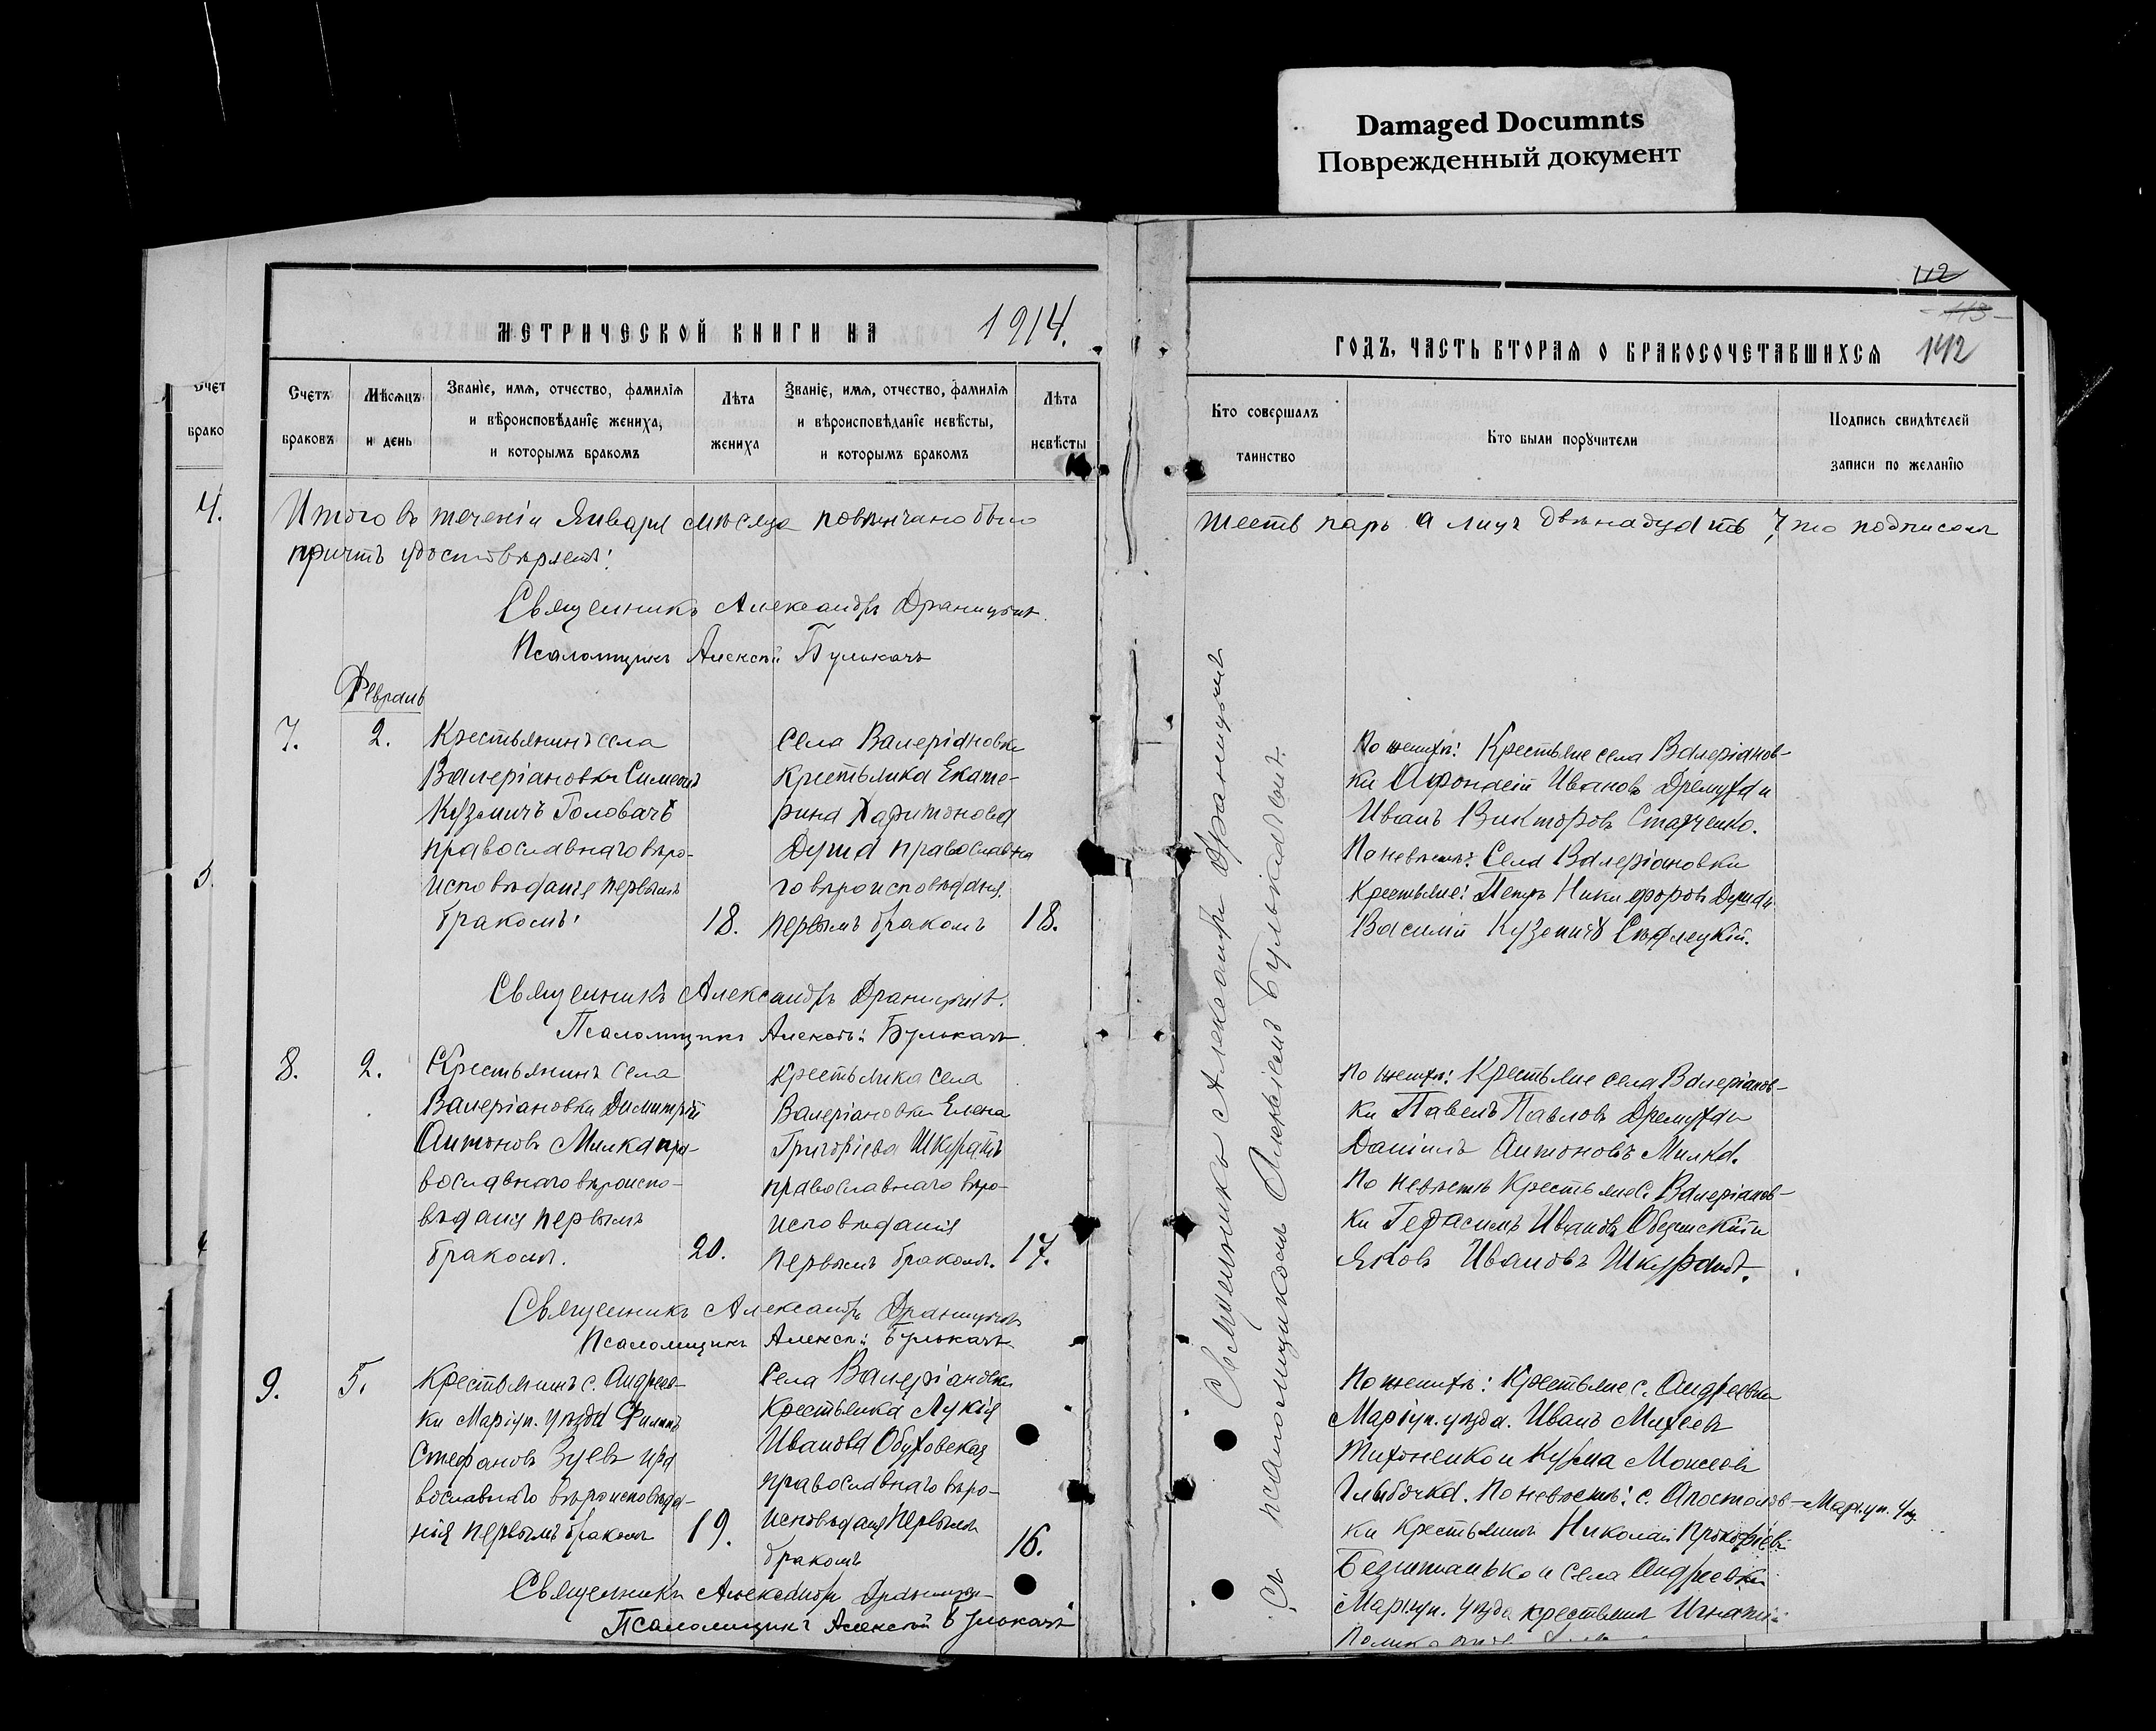 Damaged Documnts
Поврежденный документ
112
113
142
МЕТРИЧЕСКОЙ КНИГИ НА 1914.
ГОДЪ, ЧАСТЬ ВТОРАЯ О БРАКОСОЧЕТАВШИХСЯ
Счетъ
браковъ
Мѣсяцъ
и день
Званіе, имя, отчество, фамилія
и вѣроисповѣданіе жениха,
и которымъ бракомъ
Лѣта
жениха
Званіе, имя, отчество, фамилія
и вѣроисповѣданіе невѣсты,
и которымъ бракомъ
Лѣта
невѣсты
Кто совершалъ
таинство
Кто были поручители
Подпись свидѣтелей
записи по желанію
Счет
брако
4.
5.
Итого въ теченіи Января мѣсяца повѣнчано было шесть паръ а лицъ двѣнадцать, что подписомъ
причтъ удостовѣряетъ:
Священникъ Александръ
Псаломщикъ Алексѣй Булькачъ
Февраль
7.
2.
Крестьянинъ села
Валеріановки Симеонъ
Кузмичъ Головачъ
православнаго вѣро-
исповѣданія первымъ
бракомъ.
18.
Села Валеріановки
крестьянка Екате-
рина Харитонова
Душа православна
го вѣроисповѣданія
первымъ бракомъ
18.
По женихѣ: Крестьяне села Валеріанов-
ки Афонасій Ивановъ Дремуха и
Иванъ Викторовъ Старченко.
По невѣстѣ: Села Валеріановки
крестьяне: Петръ Никифоровъ Душа и
Василій Кузмичъ
Священникъ Александръ
Псаломщикъ Алексѣй Булькачъ.
8.
2.
Крестьянинъ села
Валеріановки Димитрій
Антоновъ Милка пра-
вославнаго вѣроиспо-
вѣданія первымъ
бракомъ.
20.
Крестьянка села
Валеріановки Елена
Григоріева Шкуратъ
православнаго вѣро-
исповѣданія
первымъ бракомъ.
17.
По женихѣ: Крестьяне села Валеріанов-
ки Павелъ Павловъ Дремуха и
Даніилъ Антоновъ Милка.
По невѣстѣ Крестьяне с. Валеріанов-
ки Герасимъ Ивановъ
Яковъ Ивановъ Шкуратъ.
Священникъ Александръ
Псаломщикъ Алексѣй Булькачъ
9.
5.
Крестьянинъ с. Андреев-
ки Маріуп. уѣзда Филипъ
Стефановъ Зуевъ пра
вославнаго вѣроисповѣда-
нія первымъ бракомъ
19.
Села Валеріановки
Крестьянка Лукія
Иванова Обуховская
православнаго вѣро-
исповѣданія первымъ
бракомъ
16.
По женихѣ: Крестьяне с. Андреевки
Маріуп. уѣзда. Иванъ Михеевъ
Тихоненко и Кузма Моисеевъ
Глыбочка. По невѣстѣ: с. Апостолов- Маріуп. уѣз.
ки крестьянинъ Николай Прокофіевъ
Безштанько и села Андреевки
Маріуп. уѣзда крестьянинъ Игнатій
Священникъ Александръ
Псаломщикъ Алексѣй Булькачъ
Священникъ Александръ
съ псаломщикомъ Алексѣемъ Булькачемъ.